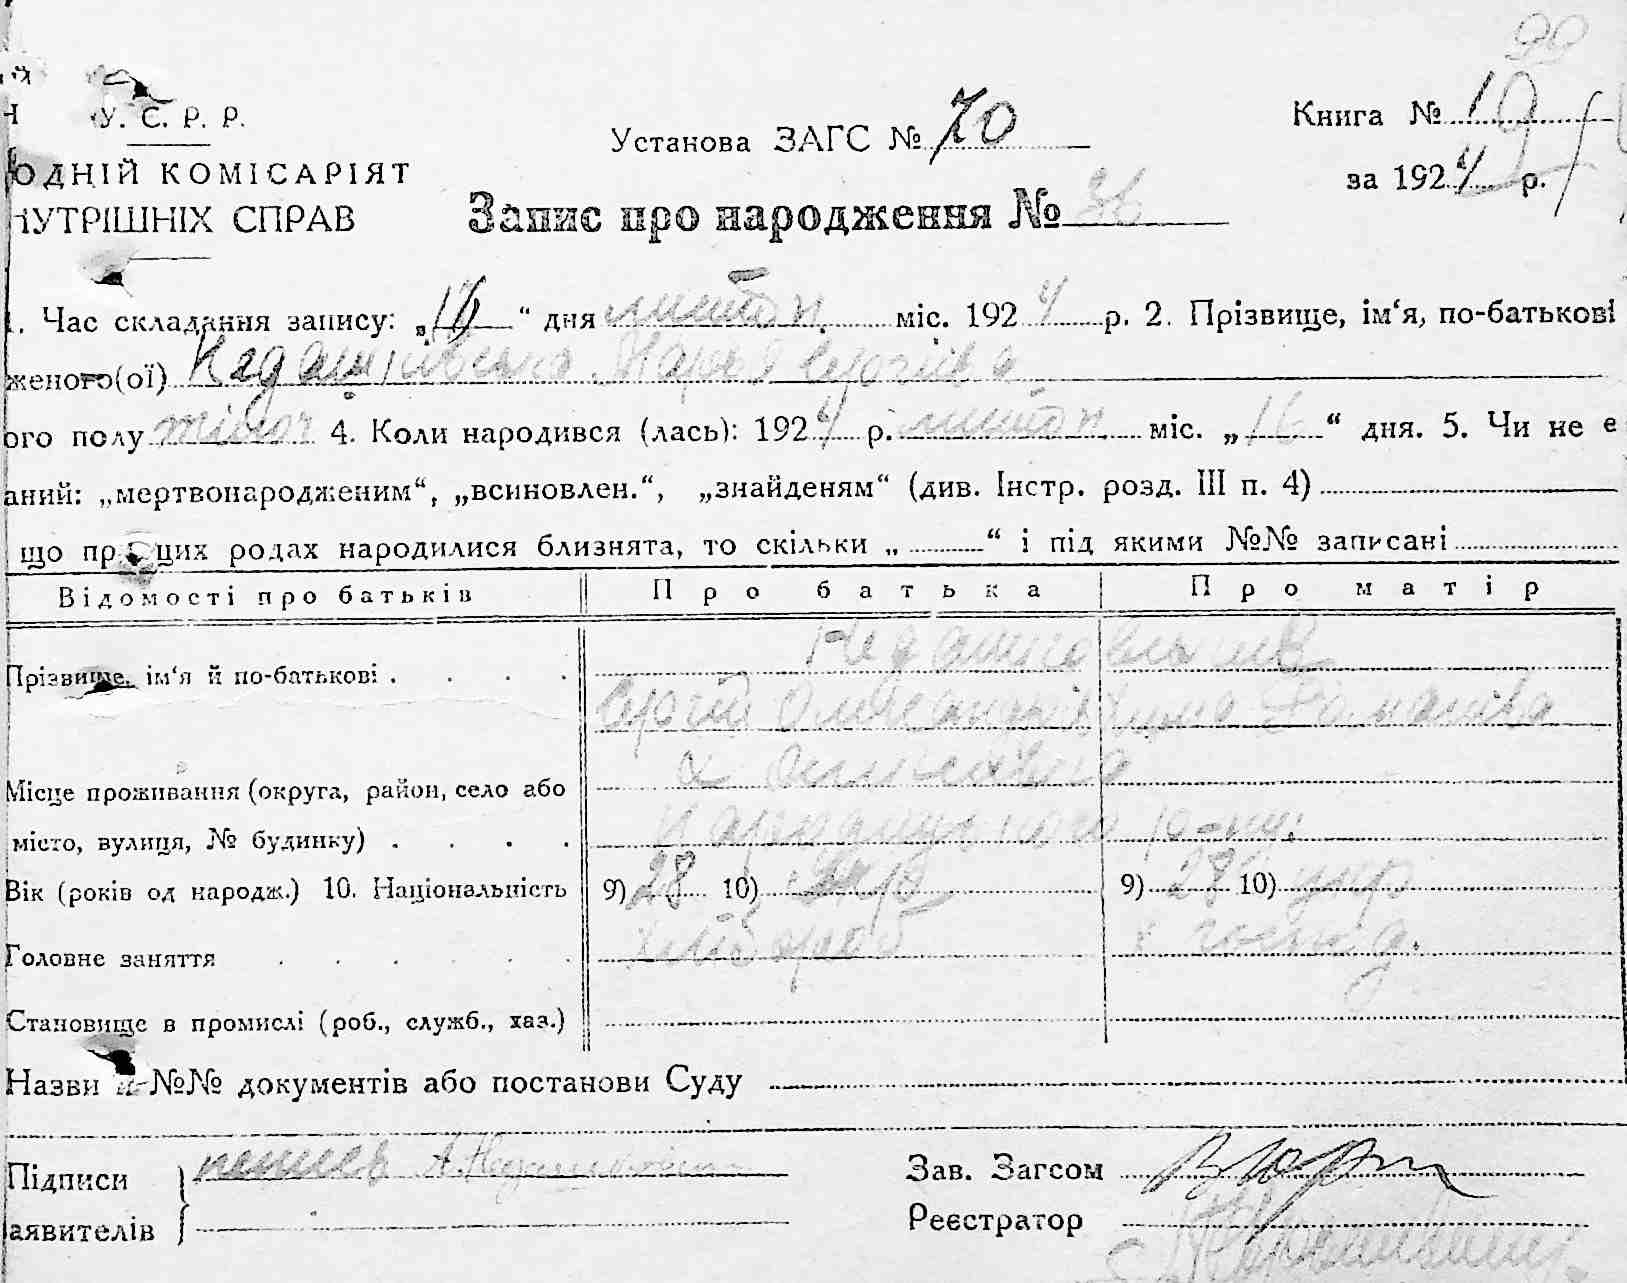 90
У. С. Р. Р.
Установа ЗАГС № 70
Книга № 19
ОДНІЙ КОМІСАРІЯТ
за 1924 р.
НУТРІШНІХ СПРАВ
Запис про народження № 36
1. Час складання запису: „16“ дня листоп. міс. 1924 р. 2. Прізвище, ім‘я, по-батькові
женого(ої) Недашківська Марья Сергіівна
ого полу жіноч 4. Коли народився (лась): 1924 р. листоп. міс. „16“ дня. 5. Чи не є
аний: „мертвонародженим“, „всиновлен.“, „знайденям“ (див. Інстр. розд. III п. 4)
що при цих родах народилися близнята, то скільки „ “ і під якими №№ записані
Відомості про батьків Про батька Про матір
Прізвище, ім‘я й по-батькові
Сергій Олександрів Романівна
Місце проживання (округа, район, село або
місто, вулиця, № будинку) р-ну.
Вік (років од народж.) 10. Національність 9) 28 10) укр 9) 28 10) укр
Головне заняття хлібороб
Становище в промислі (роб., служб., хаз.)
Назви й №№ документів або постанови Суду
Підписи А. Недашковский Зав. Загсом
аявителів Реєстратор